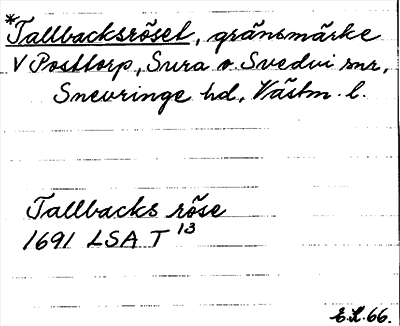 *Tallbacksröset, gränsmärke
V Posttorp, Sura o. Svedvi snr,
Snevringe hd, Västm. l.
Tallbacks röse
1691 LSA T 13
E.H. 66.